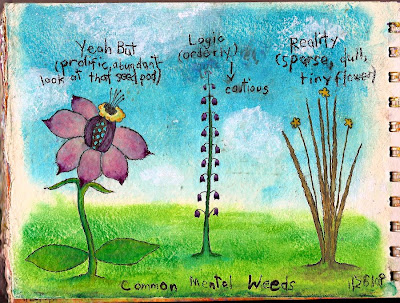 Yeah But
(prolific, abundant
look at that seed pod)
Logic
(orderly)
cautious
Reality
(sparse, dull,
tiny flower)
Common Mental Weeds